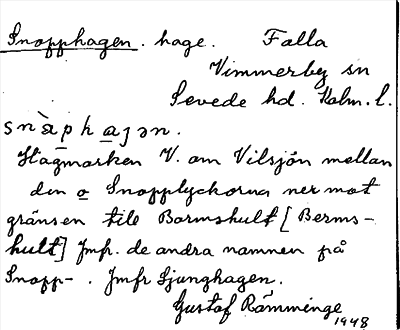 Snopphagen. hage. Falla
Vimmerby sn
Sevede hd. Kalm. l.
snὰp̲ha̲ɟən.
Hagmarken V. om Vilsjön mellan
den o Snopplyckorna ner mot
gränsen till Barmshult [Berms-
hult] Jmfr. de andra namnen på
Snopp- . Jmfr Ljunghagen.
Gustaf Rämminge
1948